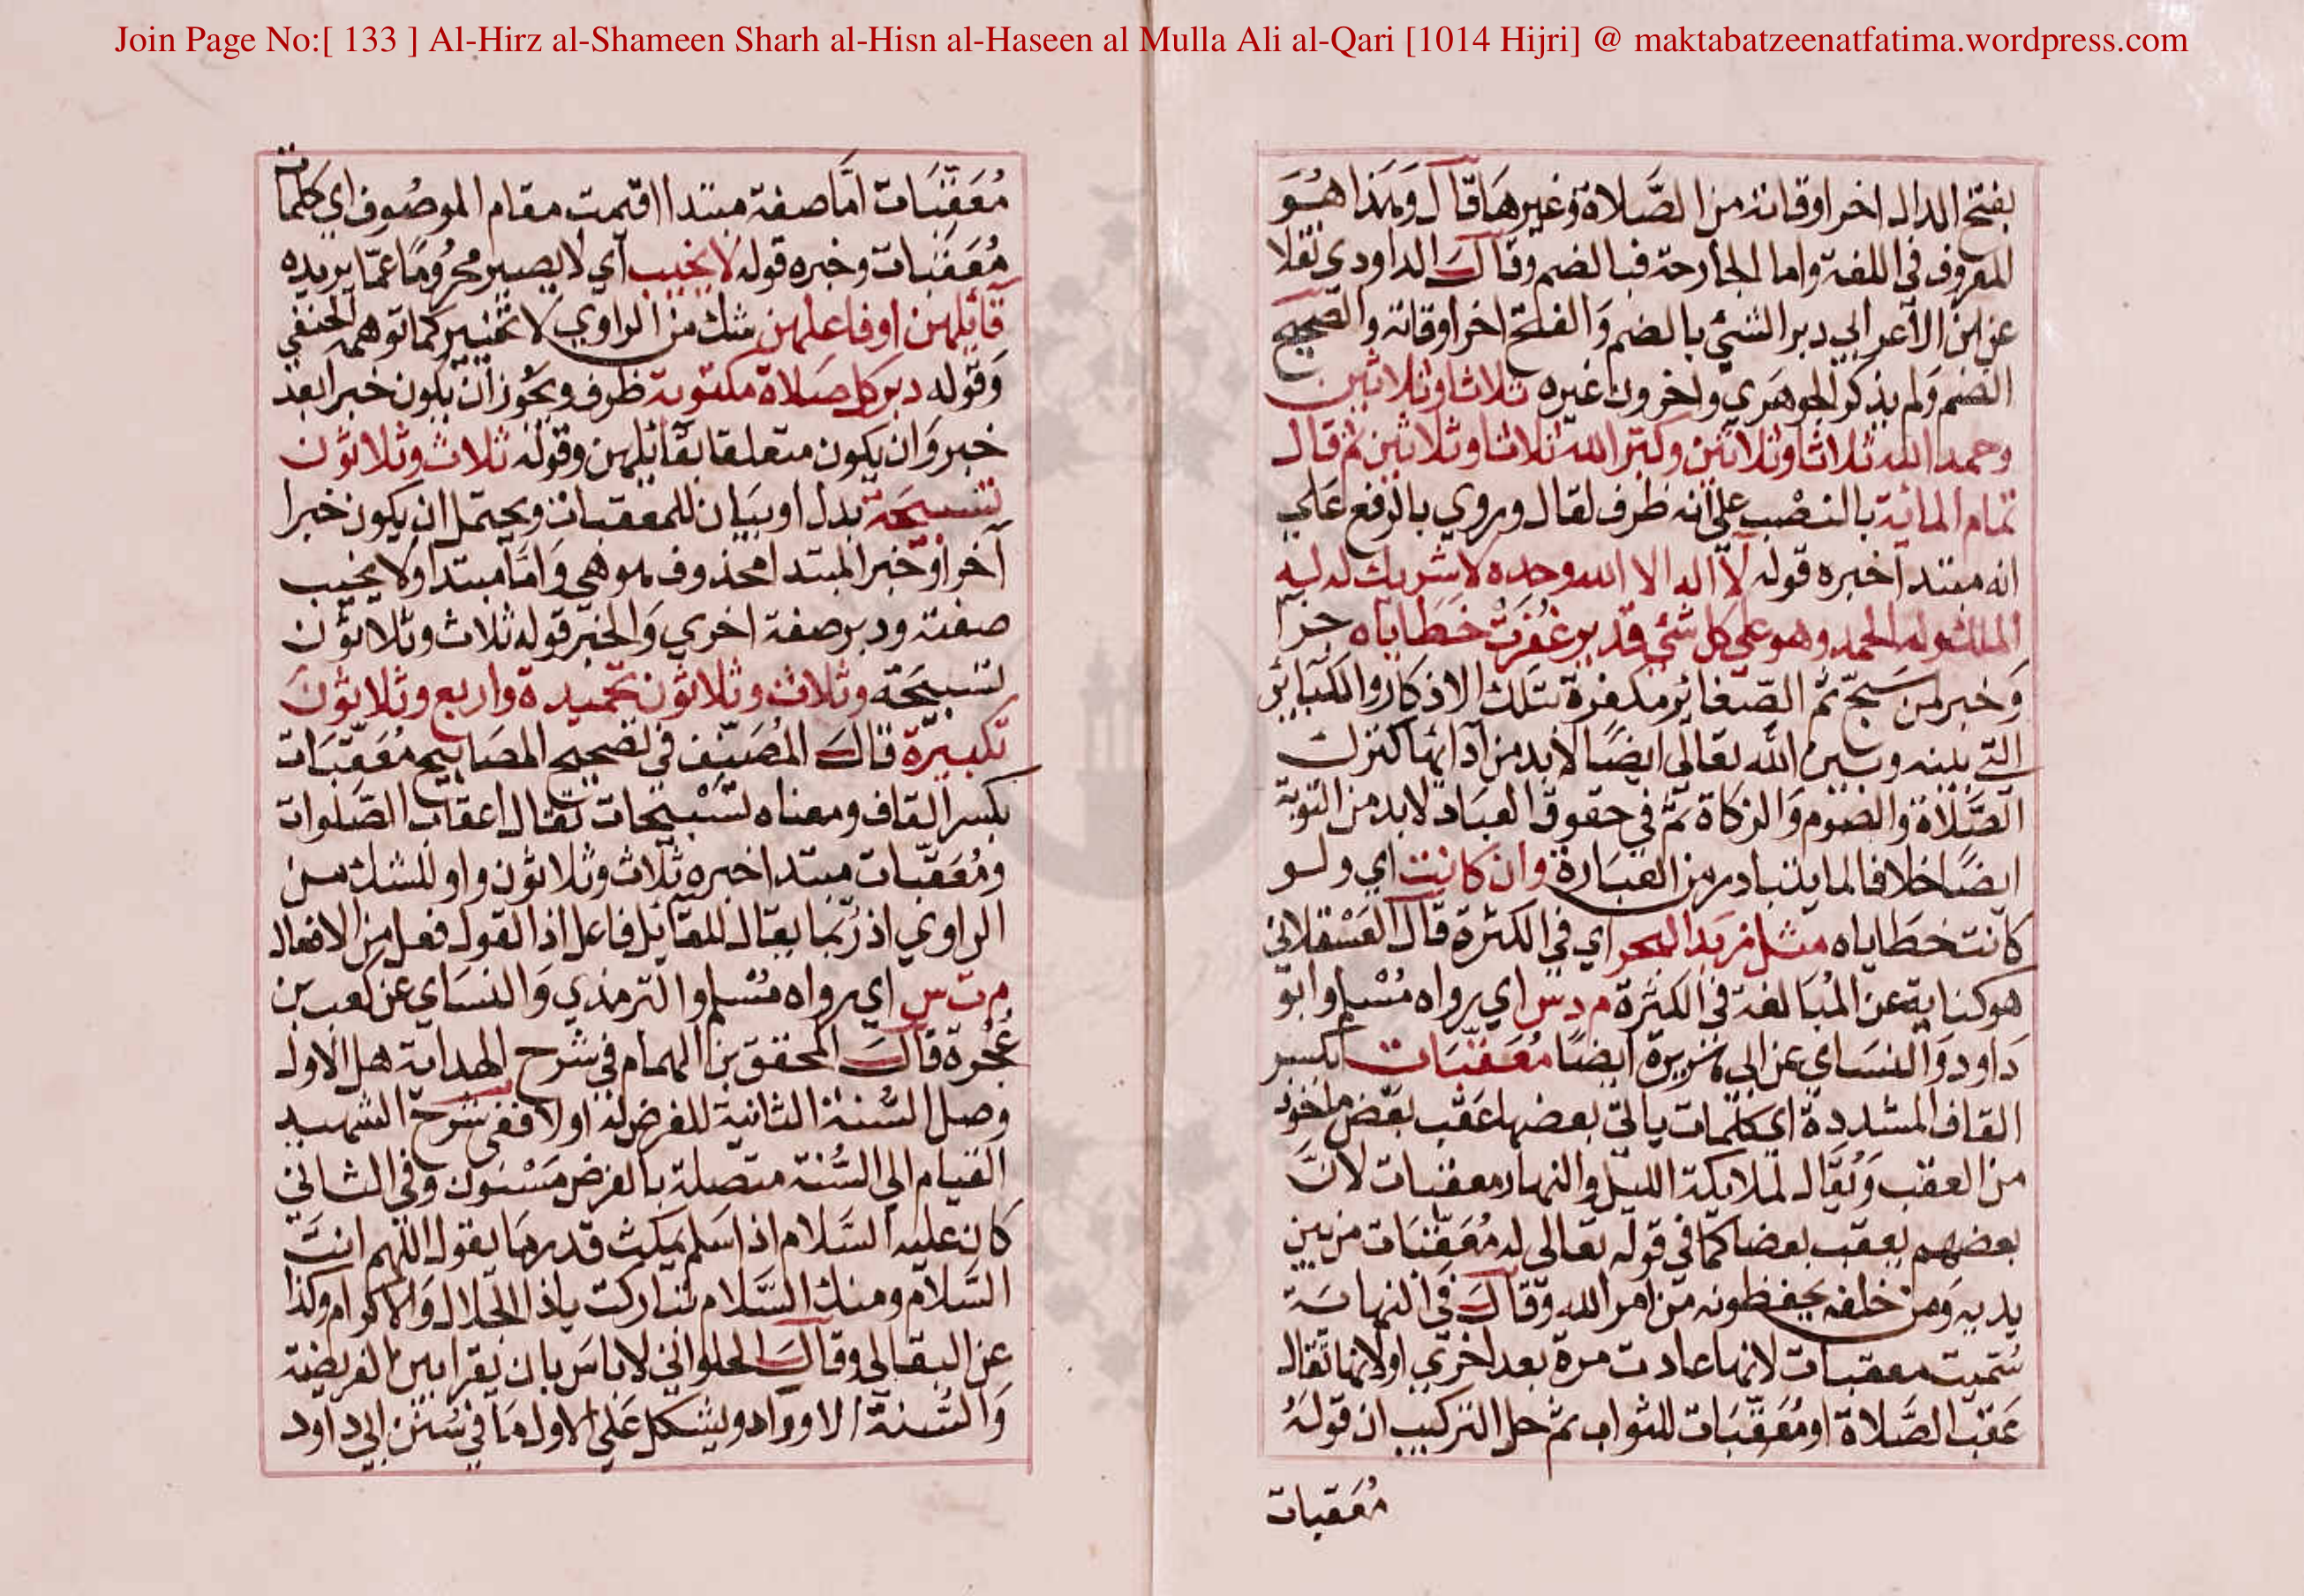 Join Page No:[ 133 ] Al-Hirz al-Shameen Sharh al-Hisn al-Haseen al Mulla Ali al-Qari [1014 Hijri] @ maktabatzeenatfatima.wordpress.com
بفتح الدال اخر اوقاته من الصَّلاة وغيرها قال وَهَذا هُوَ
المعروف في اللغة واما الجارحة فبالضم وقال الداودي نقلا
عن ابن الاعرابي دبر الشئ بالضم وَالفتح اخر اوقاته والصحيح
الضم وَلم يذكر الجوهَري واخرون غيره ثلاثا وثلاثين
وحمد الله ثلاثا وثلاثين وكبّر الله ثلاثا وثلاثين ثم قال
تمام المائة بالنصْب على انه ظرف لقال وروي بالرفع عَلي
انه مبتدا خبره قوله لا اله الا الله وحده لا شريك له له
الملك وله الحمد وهو علي كل شئ قدير غُفِرَتْ خَطَاياه جزآ
وَخبر من سَبّح ثم الصّغائر مكفرة بتلك الاذكار والكبائر
التي بينه وبين الله تعالى ايضًا لابد من آدائها كترك
الصَّلاة والصَوم وَالزكاة ثمَّ في حقوق العبَاد لابد من التوبة
ايضًا خلافا لما يتبادر من العبَارة وان كانت اي ولو
كانت خطَاياه مثل زبَد البحر اي في الكثرة قال العَسْقلاني
هو كناية عن المُبَالغة في الكثرة م د س اي رواه مُسْلم وابو
دَاود وَالنسَاي عن ابي هُريرة ايضًا مُعَقِّبَات بكسر
القاف المشددة اي كلمات ياتي بعضها عَقب بعَض ماخوذ
من العقب وَيُقَال لملايكة الليل والنهار معقبات لانَّ
بعضهم يعقب بعضا كما في قوله تعالى له مُعَقِّبَات من بين
يديه وَمن خلفه يحفظونه من امر الله وَقال في النهاية
سُمّيت معقبات لانها عادت مرة بعد اخري او لانها تقال
عَقب الصَّلاة او مُعَقِّبَات للثواب ثمّ حل التركيب ان قولَهُ
مُعَقبات
مُعَقِّبَات امَّا صفة مبتدا اقيمت مقام الموصُوف اي كلمات
مُعَقّبَات وخبره قوله لا يخيب آي لا يصير محرُومًا عمّا يريده
قَائلهن او فاعلهن شك من الراوي لا تخيير كما توهمه الحنفي
وَقوله دبر كل صَلاة مكتوبة ظرف ويجُوز ان يكون خبرا بعد
خبر وَان يكون متعلقا بقائلهن وقوله ثلاث وثلاثون
تسبيحَة بدل او بيَان للمعقبات ويحتمل ان يكون خبرا
آخر او خبر المبتدا محذوف هو هي وَامَّا مبتدا ولا يخيب
صفته ودبر صفة اخري وَالخبر قوله ثلاث وثلاثون
تسبيحَة وثلاث وثلاثون تحميدة واربع وثلاثونَ
تكبيرَة قال المُصَنِّف في تصحيح المصَابيح مُعَقِّبَات
بكسر القاف ومعناه تسْبيحات تقال اعقاب الصَّلوات
ومُعَقِّبات مبتدا خبره ثلاث وثلاثون واو للشك من
الراوي اذ رُبَّما يقال للقائل فاعل اذ القول فعل من الافعال
م ت س اي رواه مُسْلم والترمذي وَالنسَاي عن كعب بن
عُجْرة قالَ المحقق بن الهمام في شرح الهداية هل الاولى
وصل السُّنة الثانية للفرض له او لا ففي شرح الشهيد
القيام الي السُّنة متصلة بالفرض مَسْنون وَفي الشافي
كان عليه السَّلام اذا سلم يمكث قدر ما يقول اللهم انتَ
السَّلام ومنك السَّلام تباركت يا ذا الجلال وَالاكرام وكذا
عن البقالي وقالَ الحلواني لا باسَ بان يقرا بين الفريضة
وَالسُّنة الاوراد ويشكل عَلي الاول مَا في سُنن ابي داود